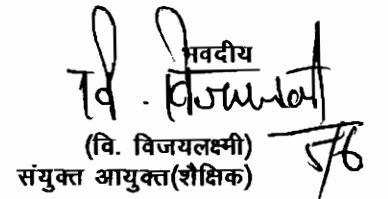 भवदीय
वि. विजयलक्ष्मी
5/6
(वि. विजयलक्ष्मी)
संयुक्त आयुक्त(शैक्षिक)